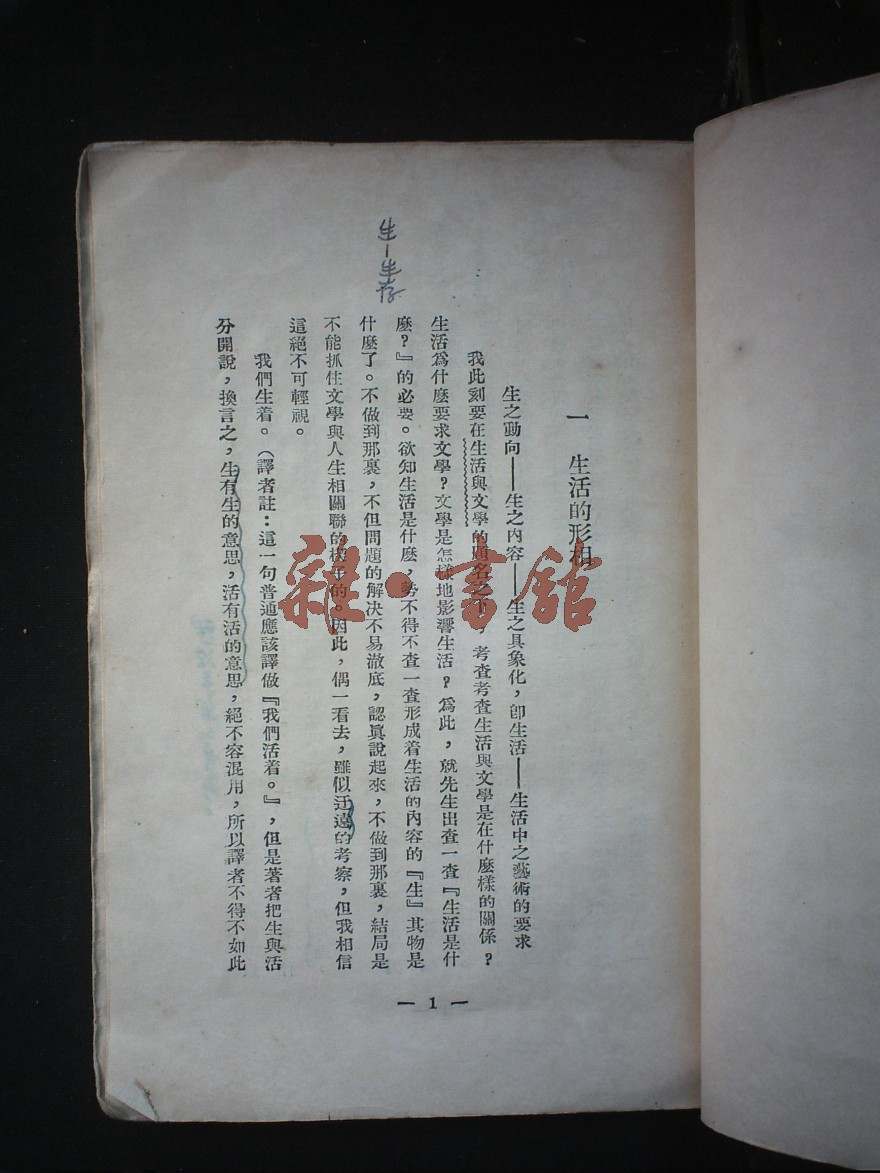 一 生活的形相
生之動向——生之內容——生之具象化,卽生活——生活中之藝術的要求
我此刻要在生活與文學的題名之下,考查考查生活與文學是在什麼樣的關係?
生活爲什麼要求文學?文學是怎樣地影響生活?爲此,就先生出查一查『生活是什
麼?』的必要。欲知生活是什麼,勢不得不查一查形成着生活的內容的『生』其物是
什麼了。不做到那裏,不但問題的解決不易澈底,認眞說起來,不做到那裏,結局是
不能抓住文學與人生相關聯的樣子的。因此,偶一看去,雖似迂遠的考察,但我相信
這絕不可輕視。
我們生着。(譯者註:這一句普通應該譯做『我們活着。』,但是著者把生與活
分開說,換言之,生有生的意思,活有活的意思,絕不容混用,所以譯者不得不如此
— 1 —
生—生存
雜·書館